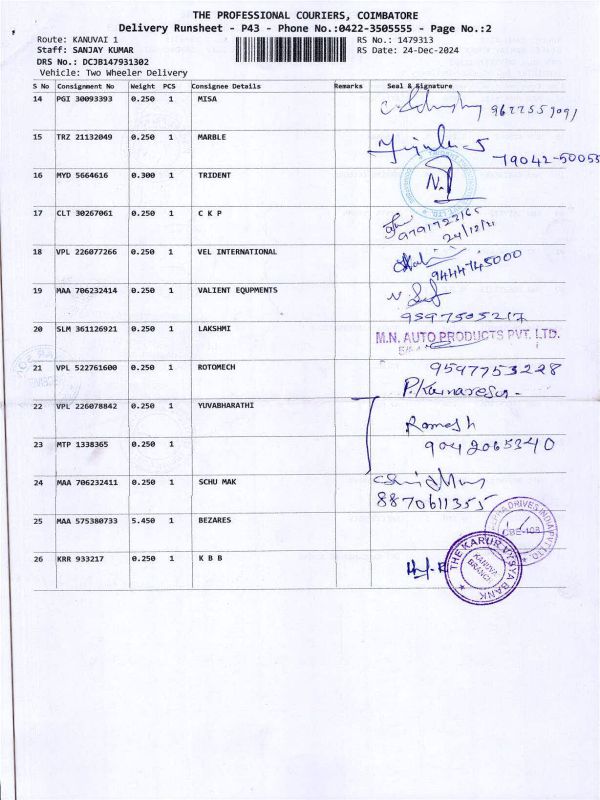 THE PROFESSIONAL COURIERS, COIMBATORE
Delivery Runsheet - P43 - Phone No.:0422-3505555 - Page No.:2
Route: KANUVAI 1 RS No.: 1479313
Staff: SANJAY KUMAR RS Date: 24-Dec-2024
DRS No.: DCJB147931302
Vehicle: Two Wheeler Delivery
S No Consignment No Weight PCS Consignee Details Remarks Seal & Signature
14 PGI 30093393 0.250 1 MISA
15 TRZ 21132049 0.250 1 MARBLE
79042-50055
16 MYD 5664616 0.300 1 TRIDENT
17 CLT 30267061 0.250 1 C K P
18 VPL 226077266 0.250 1 VEL INTERNATIONAL
9444745000
19 MAA 706232414 0.250 1 VALIENT EQUPMENTS
9597505217
20 SLM 361126921 0.250 1 LAKSHMI
M.N. AUTO PRODUCTS PVT. LTD.
21 VPL 522761600 0.250 1 ROTOMECH 9597753228
22 VPL 226078842 0.250 1 YUVABHARATHI
Ramesh
23 MTP 1338365 0.250 1 9042065340
24 MAA 706232411 0.250 1 SCHU MAK
8870611355
25 MAA 575380733 5.450 1 BEZARES
DRIVES INDIA PVT LTD
CBE-108
26 KRR 933217 0.250 1 K B B
THE KARUR VYSYA BANK
KANUVAI
BRANCH